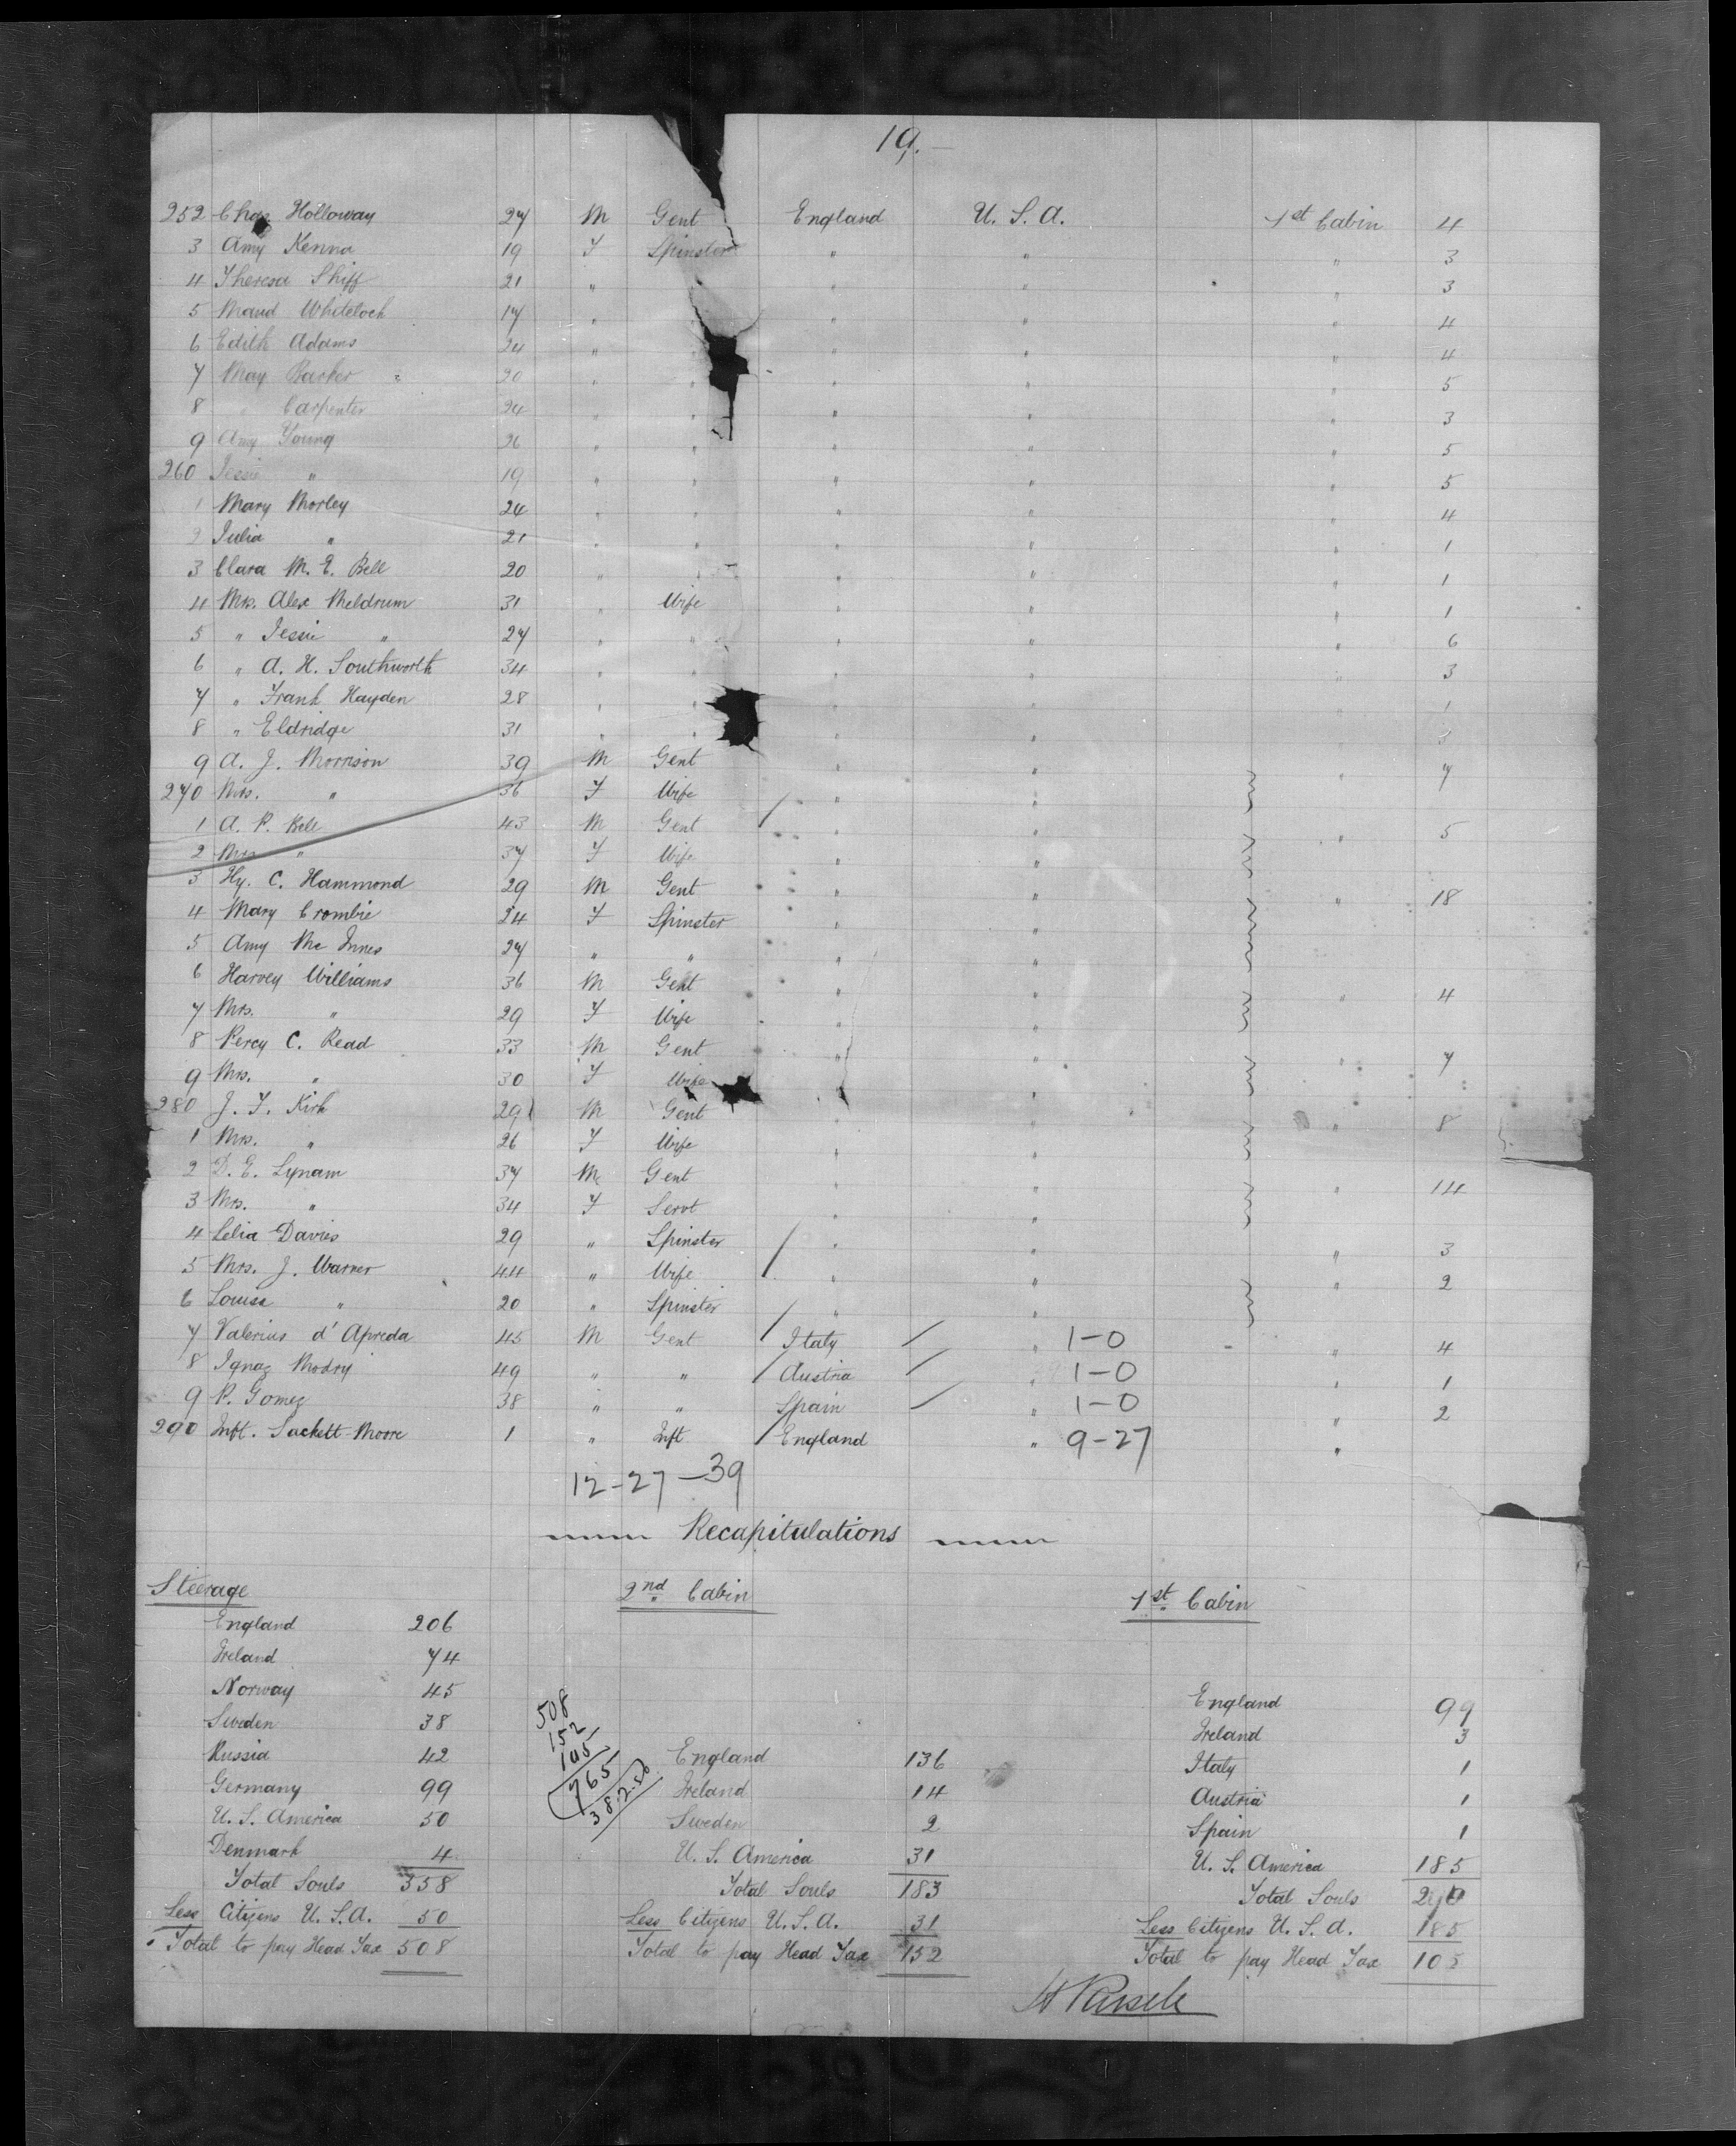 19.
252 Chas Holloway 27 M Gent England U. S. A. 1st Cabin 4
3 Amy Kenna 19 F Spinster " " " 3
4 Theresa Shiff 21 " " " " " 3
5 Maud Whitelock 17 " " " " " 4
6 Edith Adams 24 " " " " " 4
7 May Barker 20 " " " " " 5
8 " Carpenter 24 " " " " " 3
9 Amy Young 26 " " " " " 5
260 Jessie " 19 " " " " " 5
1 Mary Morley 24 " " " " " 4
2 Julia " 21 " " " " " 1
3 Clara M. E. Bell 20 " " " " " 1
4 Mrs. Alex Meldrum 31 " Wife " " " 1
5 " Jessie " 27 " " " " " 6
6 " A. H. Southworth 34 " " " " " 3
7 " Frank Hayden 28 " " " " " 1
8 " Eldridge 31 " " " " " 3
9 A. J. Morrison 39 M Gent " " " 7
270 Mrs. " 36 F Wife " "
1 A. P. Bell 43 M Gent " " " 5
2 Mrs " 37 F Wife " "
3 Hy. C. Hammond 29 M Gent " " " 18
4 Mary Crombie 24 F Spinster " "
5 Amy Mc Innes 27 " " " "
6 Harvey Williams 36 M Gent " " " 4
7 Mrs. " 29 F Wife " "
8 Percy C. Read 33 M Gent " " " 7
9 Mrs. " 30 F Wife " "
280 J. F. Kirk 29 M Gent " " " 8
1 Mrs. " 26 F Wife " "
2 D. E. Lynam 37 M Gent " " " 14
3 Mrs. " 34 F Servt " "
4 Lelia Davies 29 " Spinster " " " 3
5 Mrs. J. Warner 44 " Wife " " " 2
6 Louisa " 20 " Spinster " "
7 Valerius d'Apreda 45 M Gent Italy " 1-0 " 4
8 Ignaz Modry 49 " " Austria " 1-0 " 1
9 P. Gomez 38 " " Spain " 1-0 " 2
290 Inft. Sackett-Moore 1 " Inft England " 9-27 "
12-27-39
Recapitulations
Steerage
England 206
Ireland 74
Norway 45
Sweden 38
Russia 42
Germany 99
U. S. America 50
Denmark 4
Total Souls 558
Less Citizens U. S. A. 50
Total to pay Head Tax 508
508
152
105
765
382.50
2nd Cabin
England 136
Ireland 14
Sweden 2
U. S. America 31
Total Souls 183
Less Citizens U. S. A. 31
Total to pay Head Tax 152
1st Cabin
England 99
Ireland 3
Italy 1
Austria 1
Spain 1
U. S. America 185
Total Souls 290
Less Citizens U. S. A. 185
Total to pay Head Tax 105